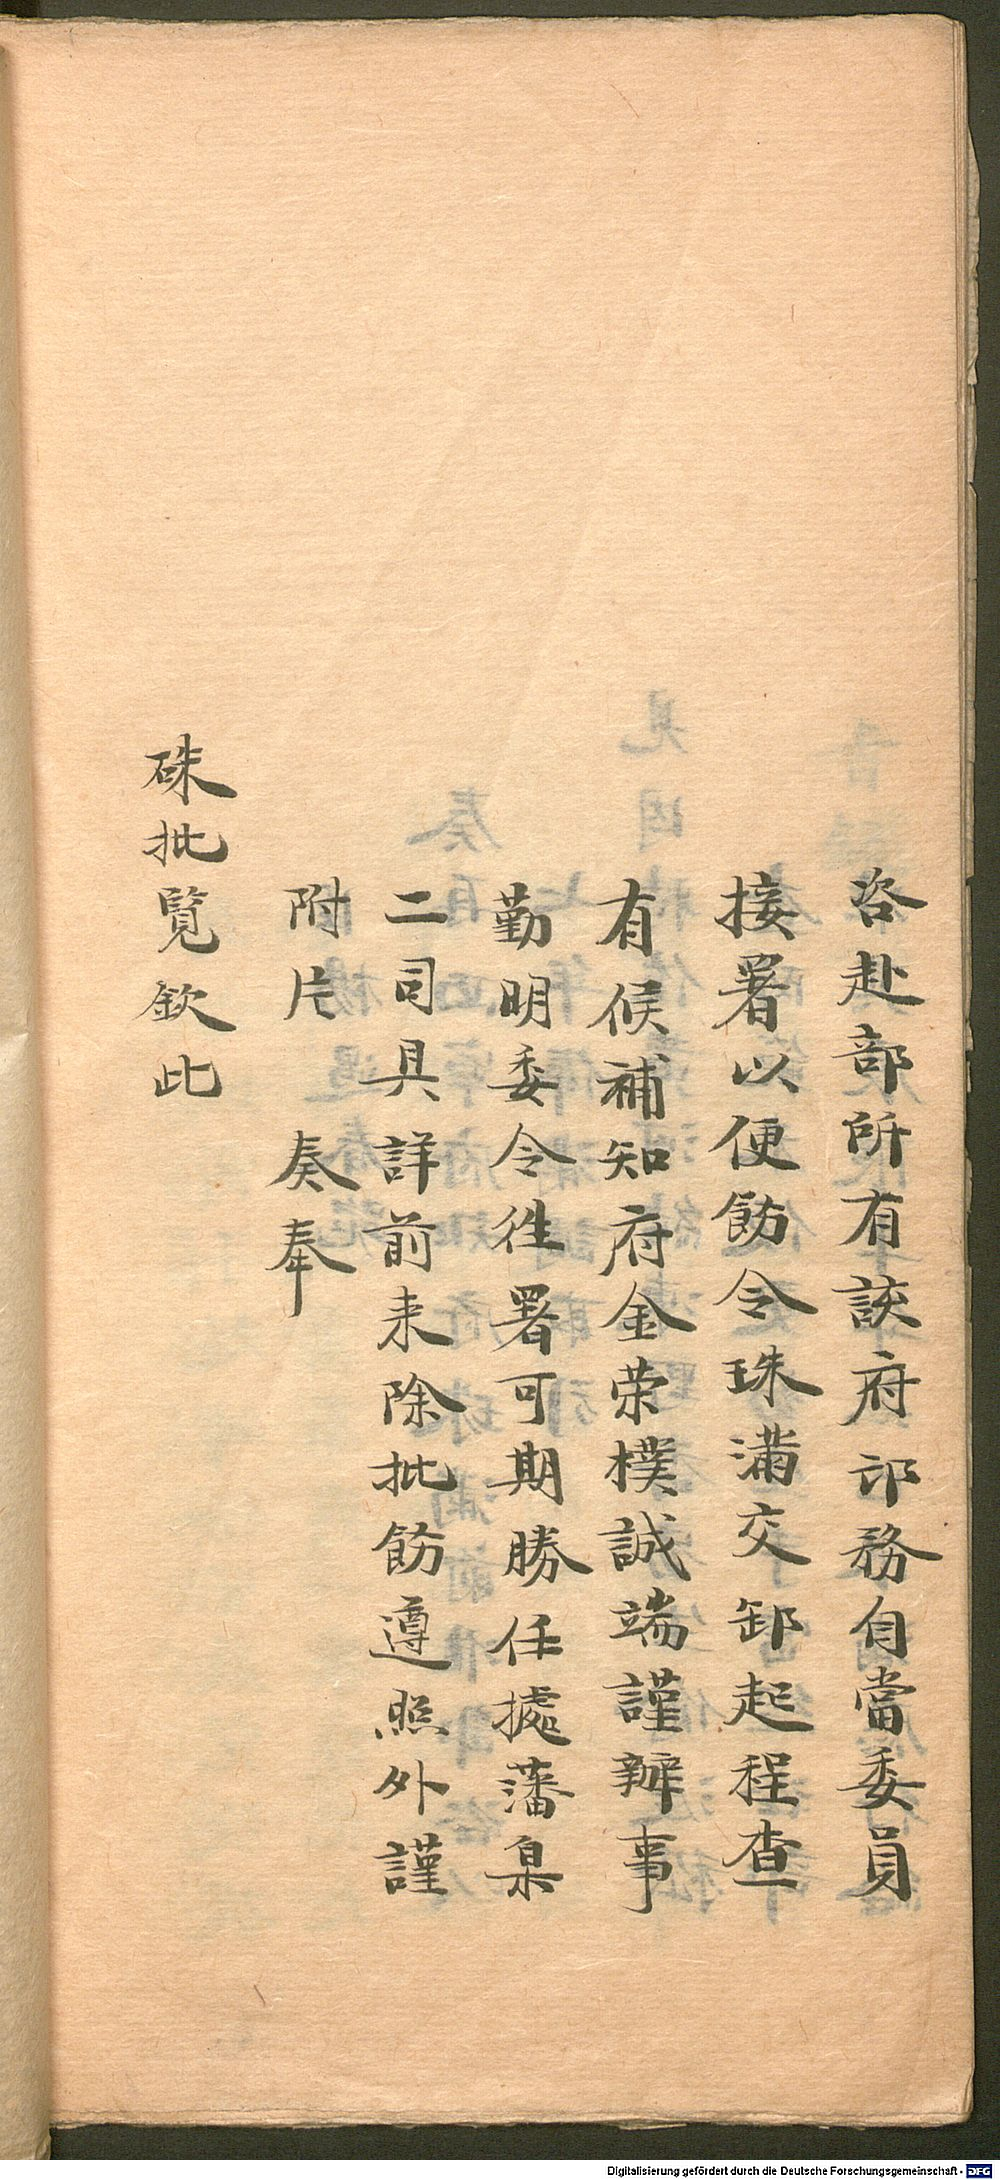 咨赴部所有該府印務自當委員
接署以便飭令珠滿交卸起程查
有候補知府金荣樸誠端謹辦事
勤明委令徃署可期勝任據藩臬
二司具詳前来除批飭遵照外謹
附片　奏奉
硃批覽欽此
Digitalisierung gefördert durch die Deutsche Forschungsgemeinschaft - DFG